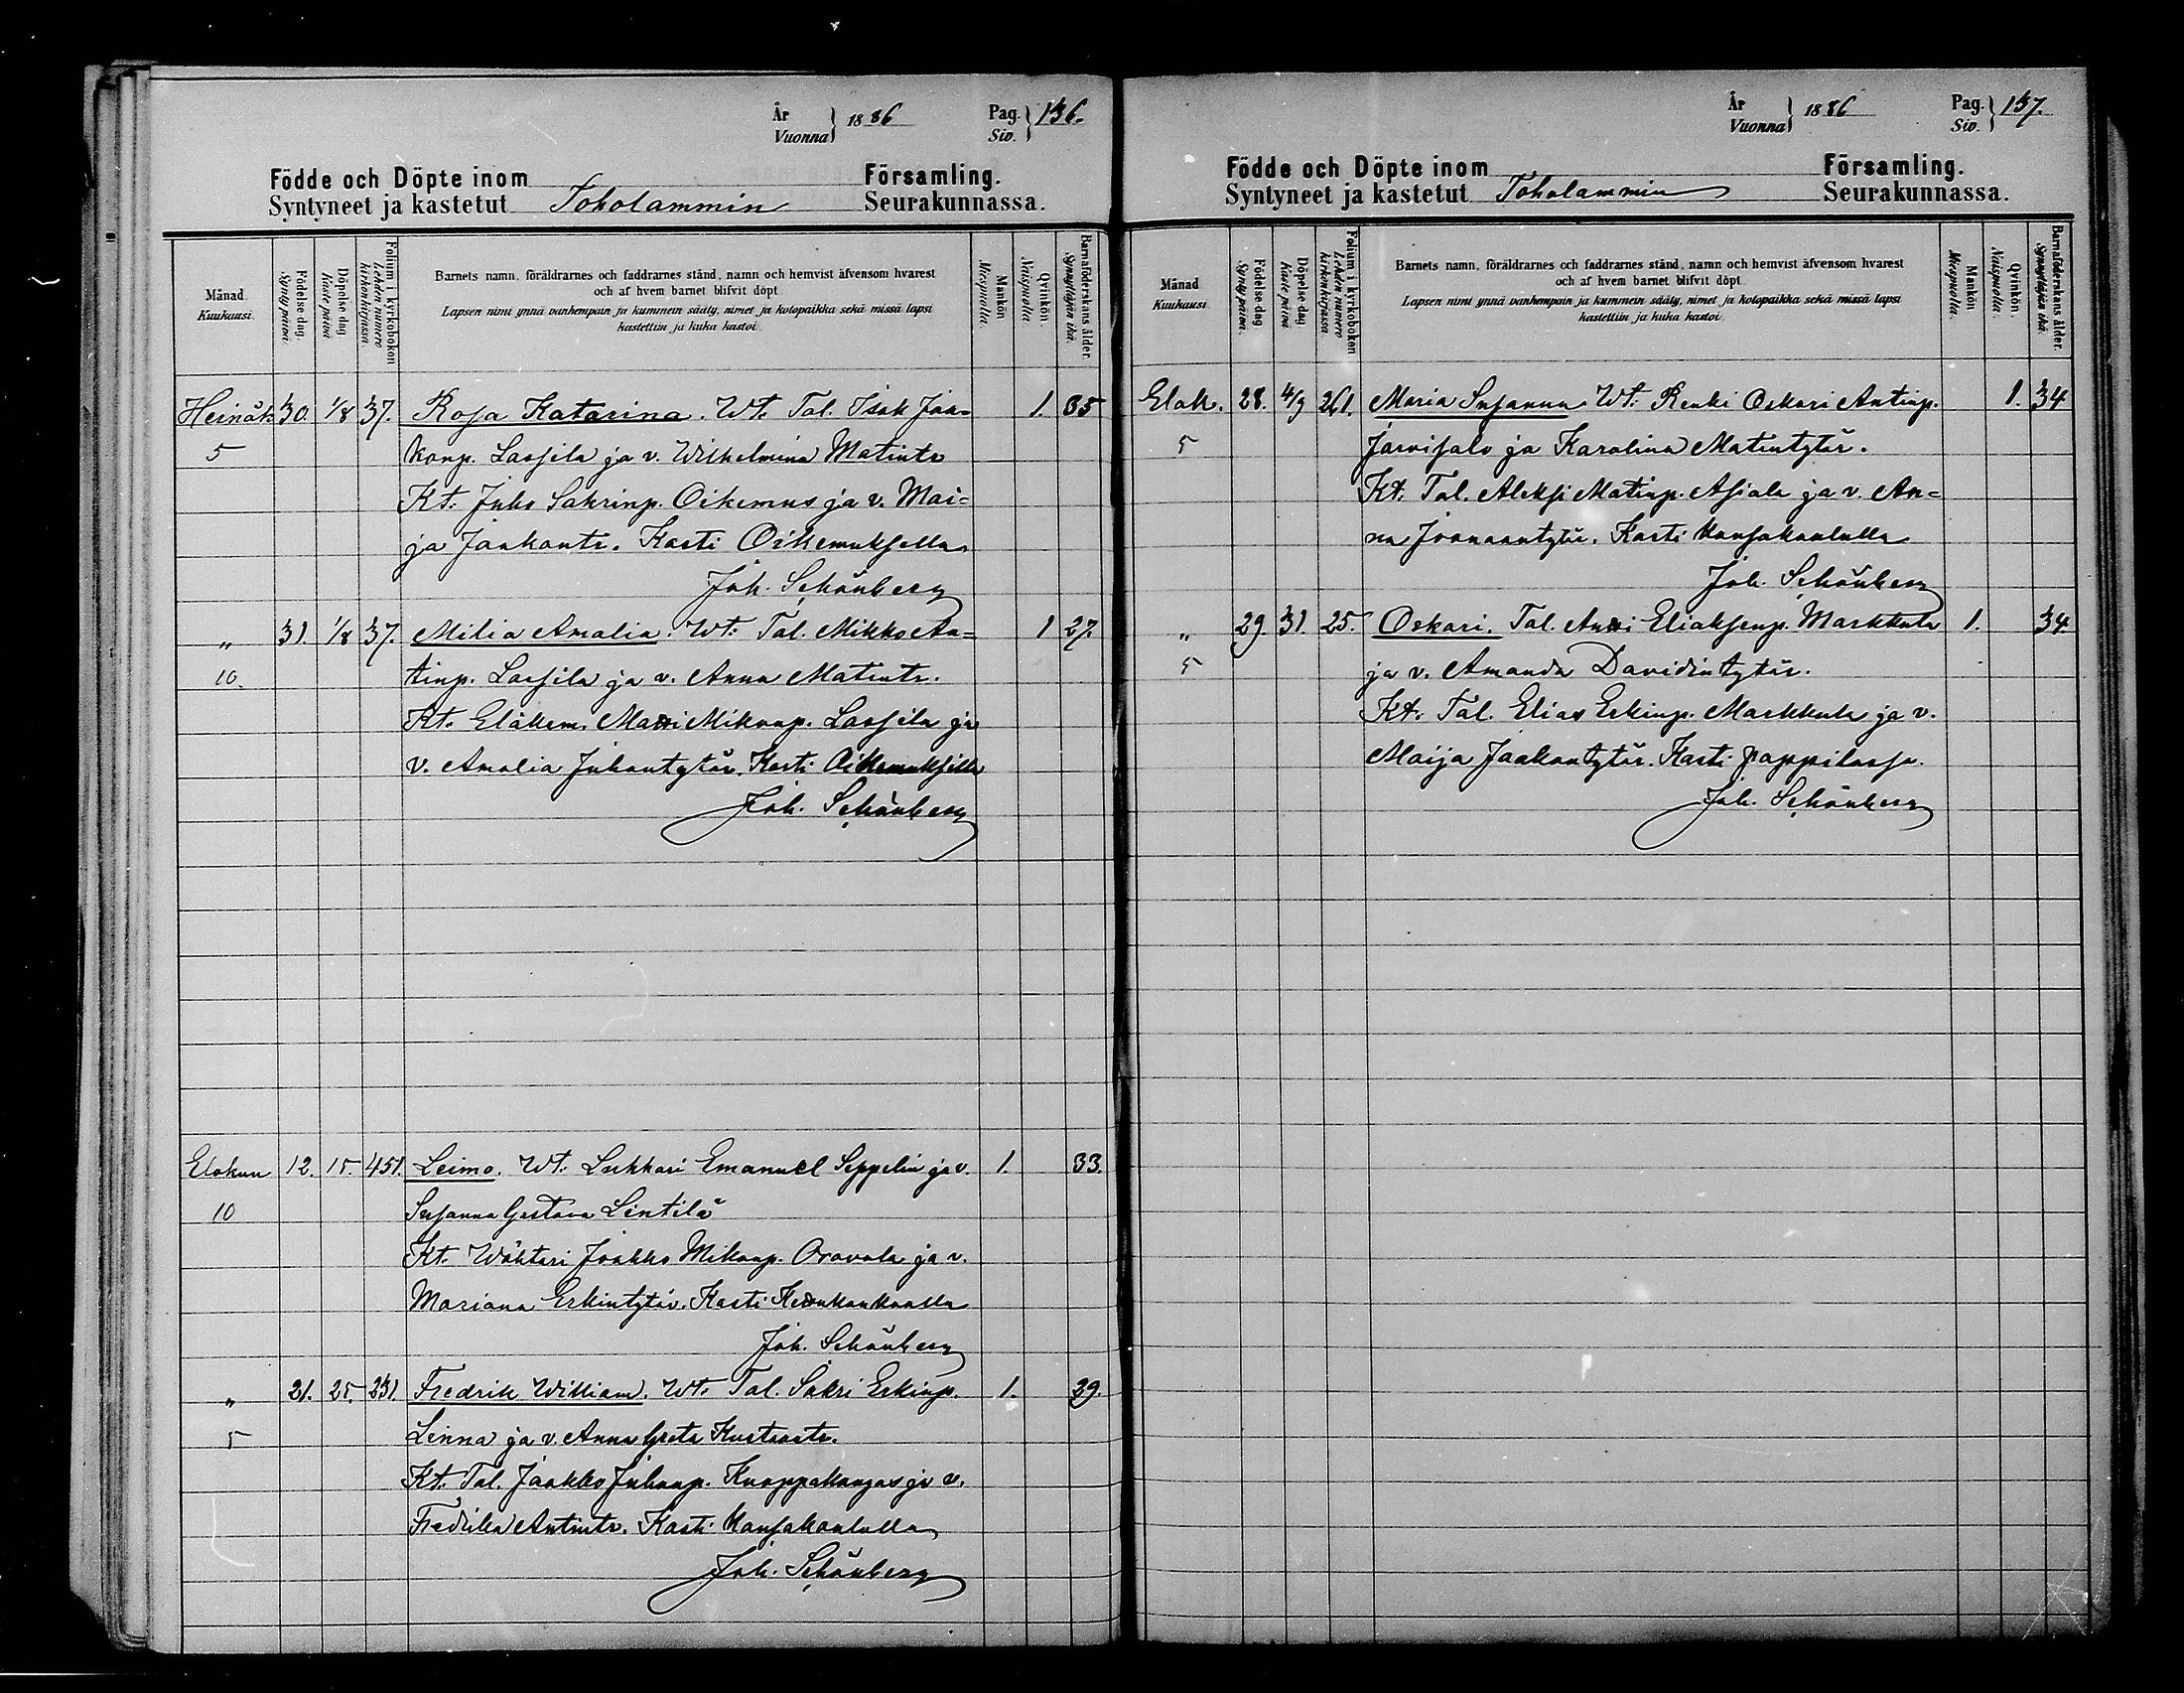 År
Vuonna } 1886 Pag.
Siv. } 136.
Födde och Döpte inom Församling.
Syntyneet ja kastetut Toholammin Seurakunnassa.
Månad.
Kuukausi.
Födelse dag.
Synty päivä.
Döpelse dag.
Kaste päivä
Folium i kyrkoboken
Lehden numero
kirkonkirjassa.
Barnets namn, föräldrarnes och faddrarnes stånd, namn och hemvist äfvensom hvarest
och af hvem barnet blifvit döpt.
Lapsen nimi ynnä vanhempain ja kummein sääty, nimet ja kotopaikka sekä missä lapsi
kastettiin ja kuka kastoi.
Mankön
Miespuolia.
Qvinkön.
Naispuolia
Barnaföderskans ålder.
Synnyttäjän ikä.
Heinäk. 30. 1/8 37. Rosa Katarina. Wt. Tal. Isak Jaa= 1. 35
5 konp. Lassila ja v. Wilhelmina Matintr
Kt. Juho Sakrinp. Oikemus ja v. Mai=
ja Jaakontr. Kasti Oikemuksella
Joh. Schönberg
" 31. 1/8 37. Milia Amalia. Wt: Tal. Mikko An= 1 27.
10. tinp. Lassila ja v. Anna Matintr.
Kt. Eläkem. Matti Mikonp. Lassila ja
v. Amalia Juhontytär. Kasti Oikemuksella
Joh. Schönberg
Elokuu 12. 15. 451. Leimo. Wt: Lukkari Emanuel Seppelin ja v. 1. 33.
10 Susanna Gustava Lintilä
Kt. Wähtäri Jaakko Mikonp. Oravala ja v.
Mariana Erkintytär. Kasti
Joh. Schönberg
" 21. 25. 231. Fredrik William. Wt. Tal. Sakri Erkinp. 1. 29.
5 Linna ja v. Anna Greta Kustaantr.
Kt. Tal. Jaakko Juhonp. Knoppakangas ja v.
Fredrika Antintr. Kasti Kansakoululla
Joh. Schönberg
År
Vuonna } 1886 Pag.
Siv. } 137.
Födde och Döpte inom Församling.
Syntyneet ja kastetut Toholammin Seurakunnassa.
Månad
Kuukausi
Födelse dag
Synty päivä.
Döpelse dag
Kaste päivä.
Folium i kyrkoboken
Lehden numero
kirkonkirjassa
Barnets namn, föräldrarnes och faddrarnes stånd, namn och hemvist äfvensom hvarest
och af hvem barnet blifvit döpt.
Lapsen nimi ynnä vanhempain ja kummein sääty, nimet ja kotopaikka sekä missä lapsi
kastettiin ja kuka kastoi.
Mankön
Miespuolia.
Qvinkön.
Naispuolia.
Barnaföderskans ålder.
Synnyttäjän ikä.
Elok. 28. 4/9 261. Maria Susanna Wt: Renki Oskari Antinp. 1. 34
5 Järvisalo ja Karolina Matintytär.
Kt. Tal. Aleksi Matinp. Asiala ja v. An=
na Joonaantytär. Kasti Kansakoululla
Joh. Schönberg
" 29. 31. 25. Oskari. Tal. Antti Eliaksenp. Markkula 1. 34.
5 ja v. Amanda Davidintytär.
Kt. Tal. Elias Erkinp. Markkula ja v.
Maija Jaakontytär. Kasti pappilassa.
Joh. Schönberg